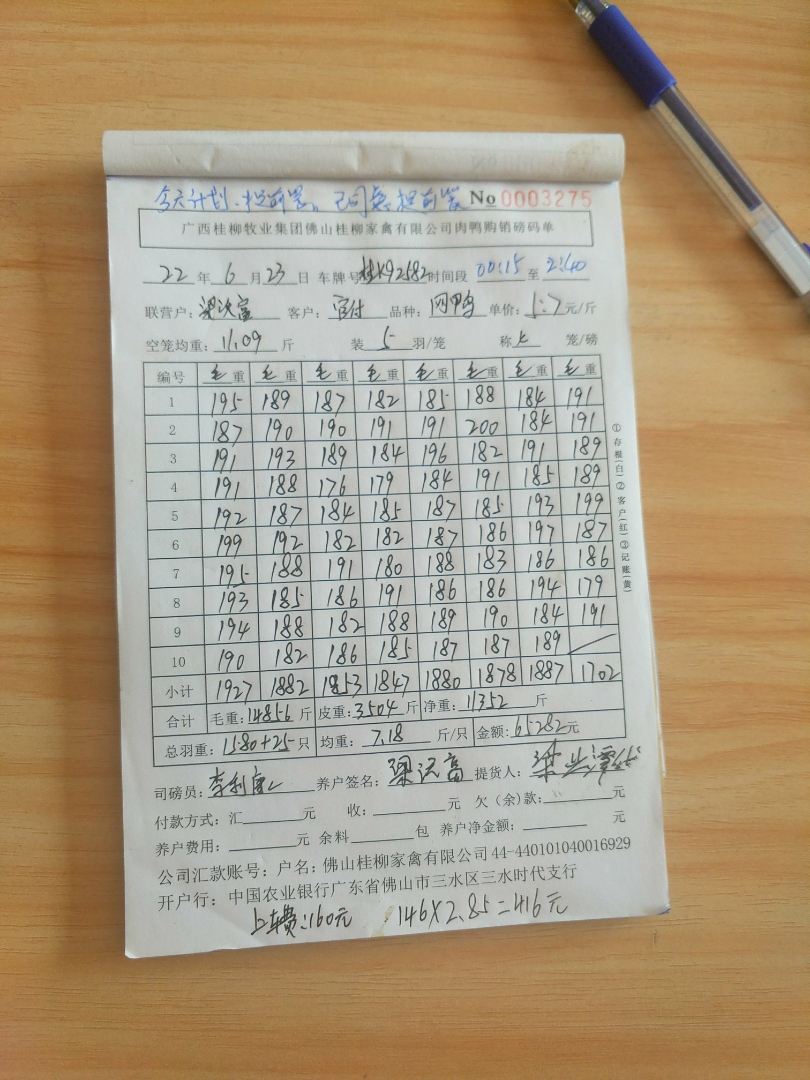 今天计划、提前装。已同意提前装 No 0003275
广西桂柳牧业集团佛山桂柳家禽有限公司肉鸭购销磅码单
22 年 6 月 23 日 车牌号 桂K92582 时间段 00:15 至 2:40
联营户: 客户: 官付 品种: 网鸭 单价: 5.7 元/斤
空笼均重: 11.09 斤 装 5 羽/笼 称 笼/磅
编号 毛重 毛重 毛重 毛重 毛重 毛重 毛重 毛重
1 195 189 187 182 185 188 184 191
2 187 190 190 191 191 200 184 191
3 191 193 189 184 196 182 191 189
4 191 188 176 179 184 191 185 189
5 192 187 184 185 187 185 193 199
6 199 192 182 182 187 186 197 187
7 195 188 191 180 188 183 186 186
8 193 185 186 191 186 186 194 179
9 194 188 182 188 189 190 184 191
10 190 182 186 185 187 187 189
小计 1927 1882 1853 1847 1880 1878 1887 1702
合计 毛重: 14856 斤 皮重: 3504 斤 净重: 11352 斤
总羽重: 1580+25 只 均重: 7.18 斤/只 金额: 65282 元
司磅员: 养户签名: 提货人:
付款方式: 汇 元 收: 元 欠(余)款: 元
养户费用: 元 余料 包 养户净金额: 元
公司汇款账号: 户名: 佛山桂柳家禽有限公司 44-440101040016929
开户行: 中国农业银行广东省佛山市三水区三水时代支行
上车费:160元 146×2.85=416元
①存根(白)②客户(红)③记账(黄)